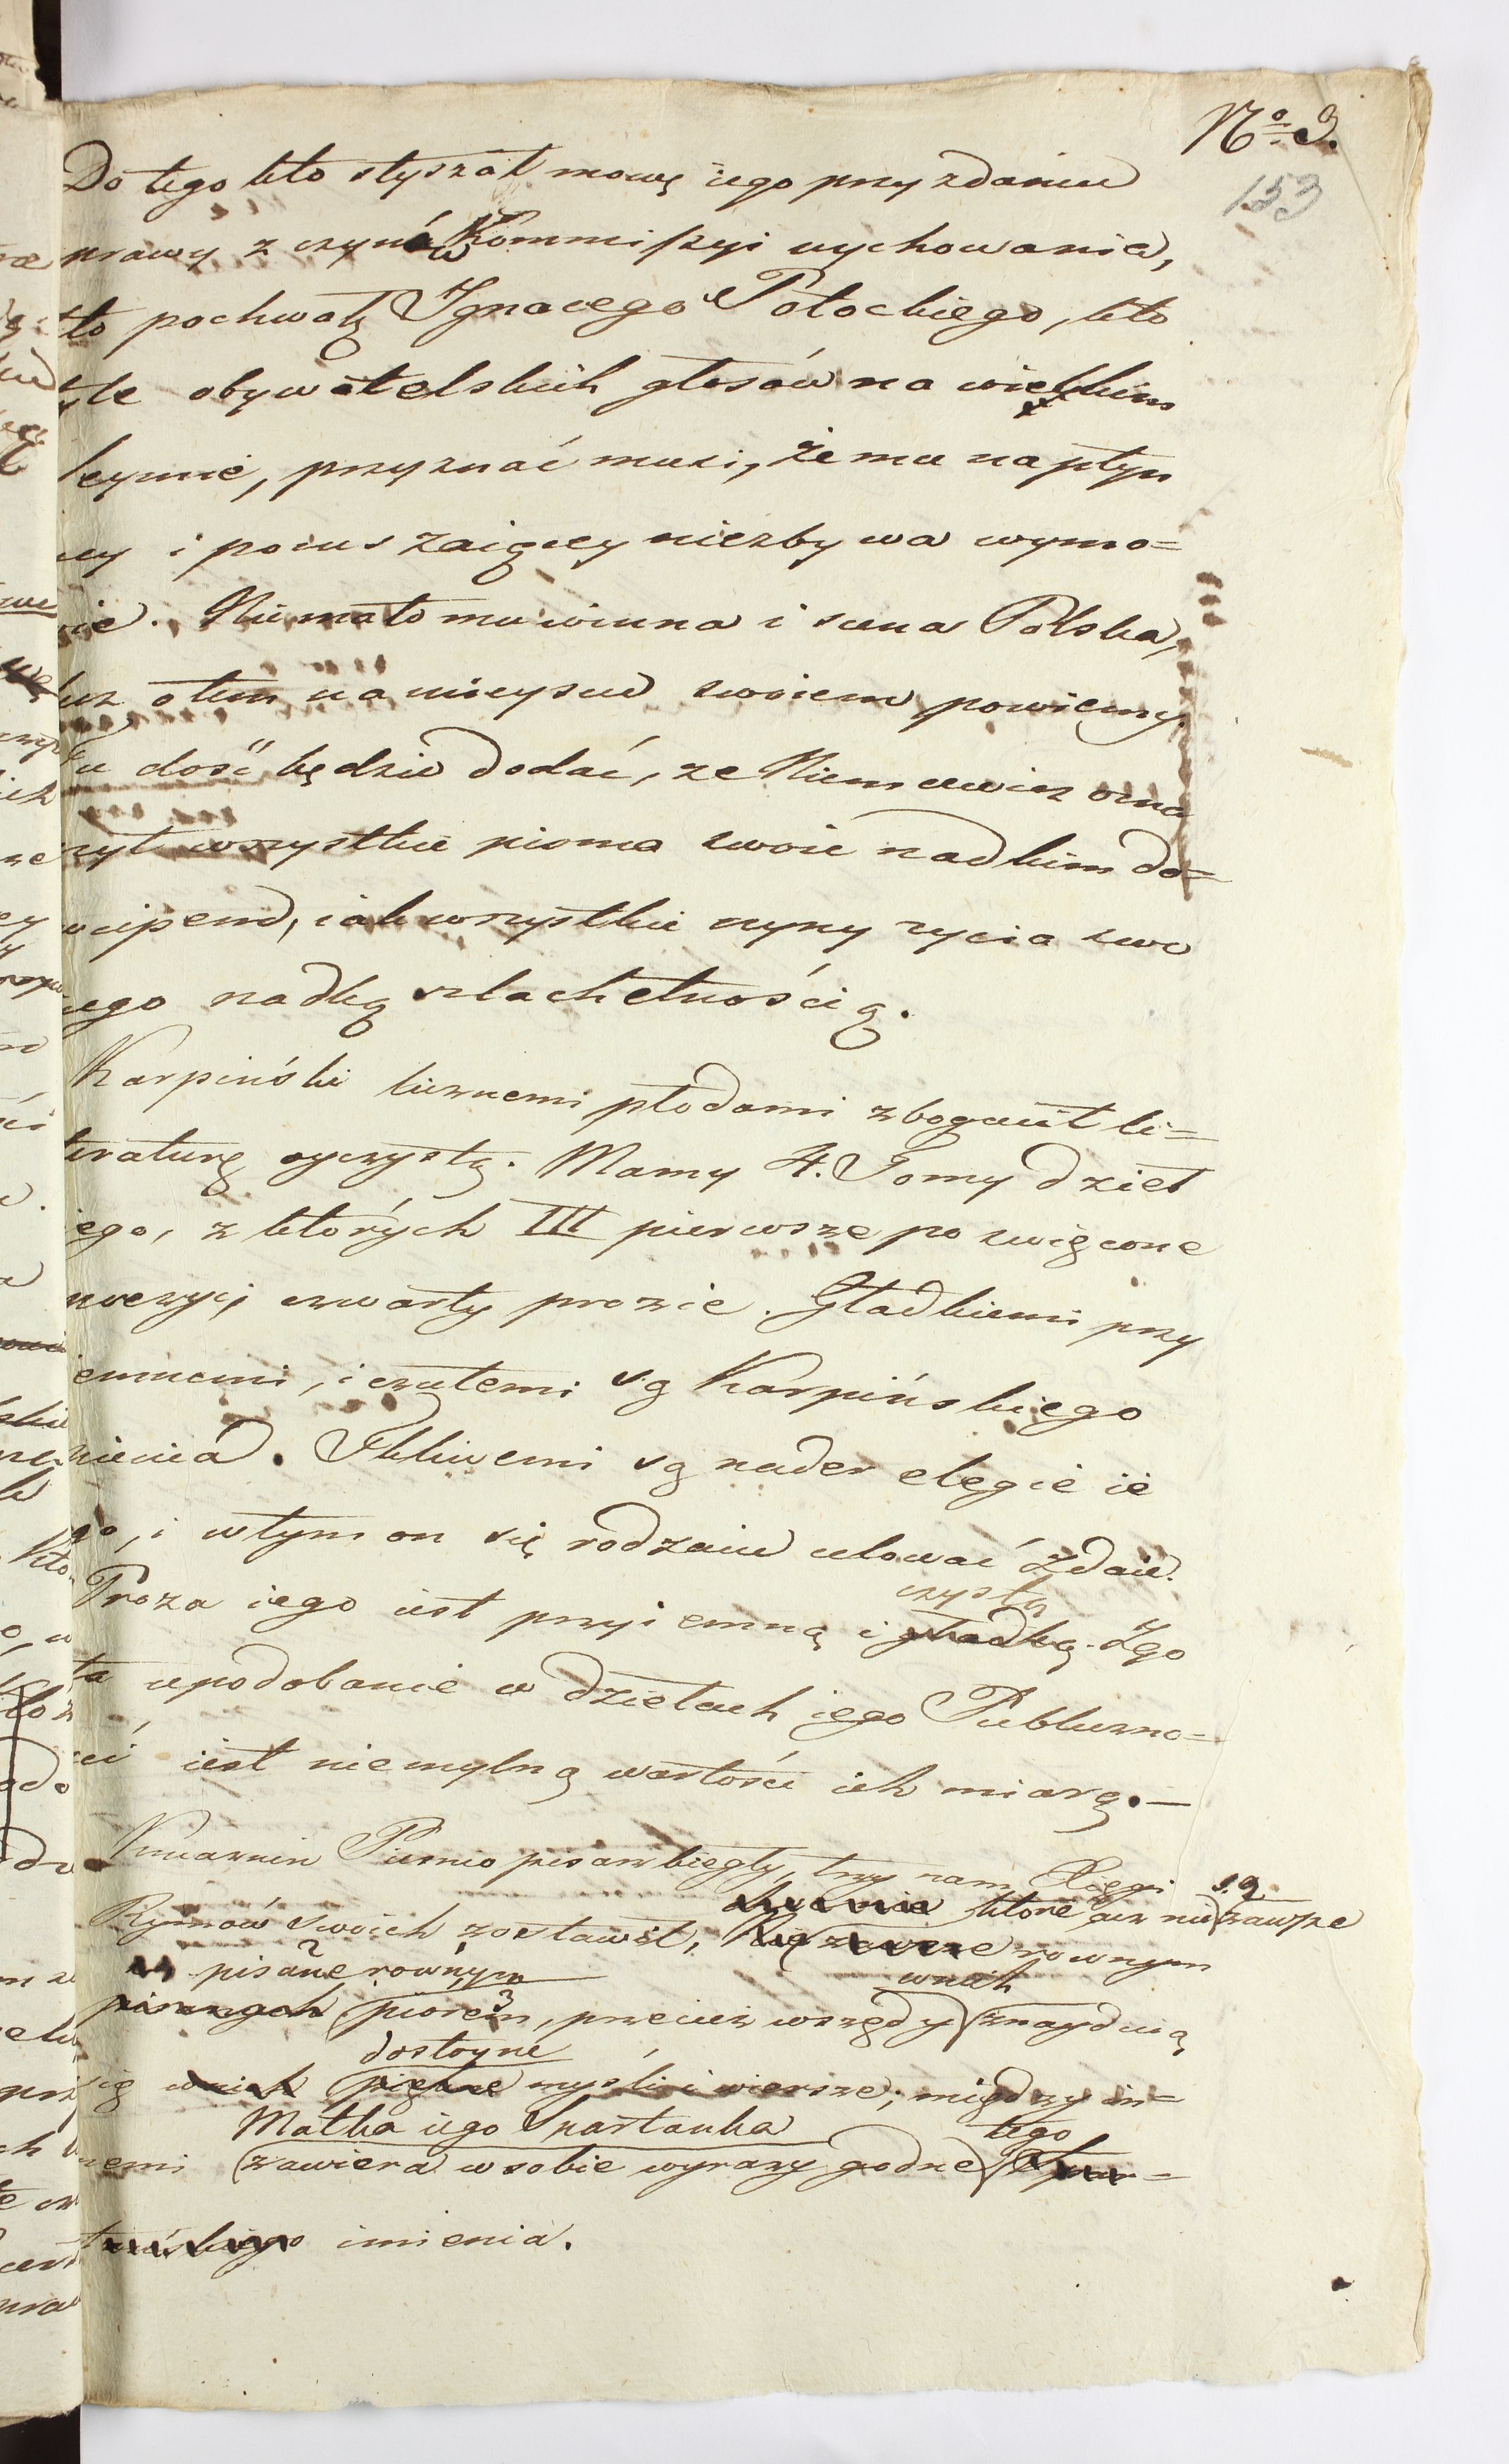 Nº 3.
153
Do tego kto słyszał mowę iego przy zdaniu
sprawy z czynów Kommissyi wychowania,
kto pochwałę Ignacego Potockiego, kto
tyle obywatelskich głosów na wielkim
Seymie, przyznać musi, że mu na płyn
ney i poruszaiącey niezbywa wymo=
wie. Niemało mu winna i scena Polska,
lecz o tem na mieyscu swoiem powiemy.
Tu dość będzie dodać, ze Niemcewicz ozna
czył wszystkie pisma swoie rzadkim do=
wcipem, iak wszystkie czyny zycia swo
iego rzadką szlachetnością.
Karpiński licznemi płodami zbogacił li=
teraturę oyczystą. Mamy 4. Tomy dzieł
iego, z których III pierwsze poswięcone
poezyi, czwarty prozie. Gładkiemi przy
iemnemi, i czułemi są Karpińskiego
pienia. Tkliwemi są nader elegie ie
go, i w tym on się rodzaiu celować zdaie.
czystą
Proza iego iest przyiemną i gładką. Zgo
ła upodobanie w dziełach iego Publiczno=
ści iest niemylną wartości ich miarą.—
Kniaznin Pismo pisarz biegły, trzy nam Xięgi
są
które acz nie zawsze
Rymów swoich zostawił, Nie zawsze rownym
pisane równym
w nich
pisanych piorem, przecież wszędy znayduią
dostoyne
się w nich piękne myśli i wiersze; między in=
Matka iego Spartanka
tego
nemi zawiera w sobie wyrazy godne Spar=
tańskiego imienia.